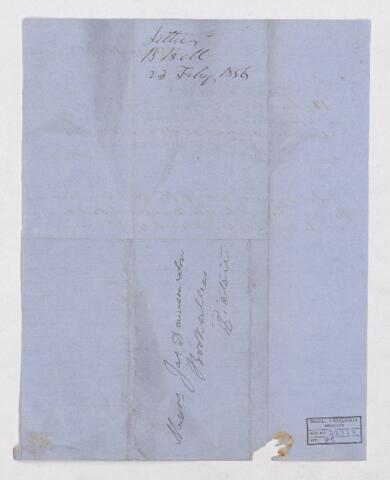 Letter
B Bell
23 Feby, 1856
Messrs Jas Dawson & Son
Booksellers
Pictou
McGILL UNIVERSITY
ARCHIVES
ACC. NO.
REF.